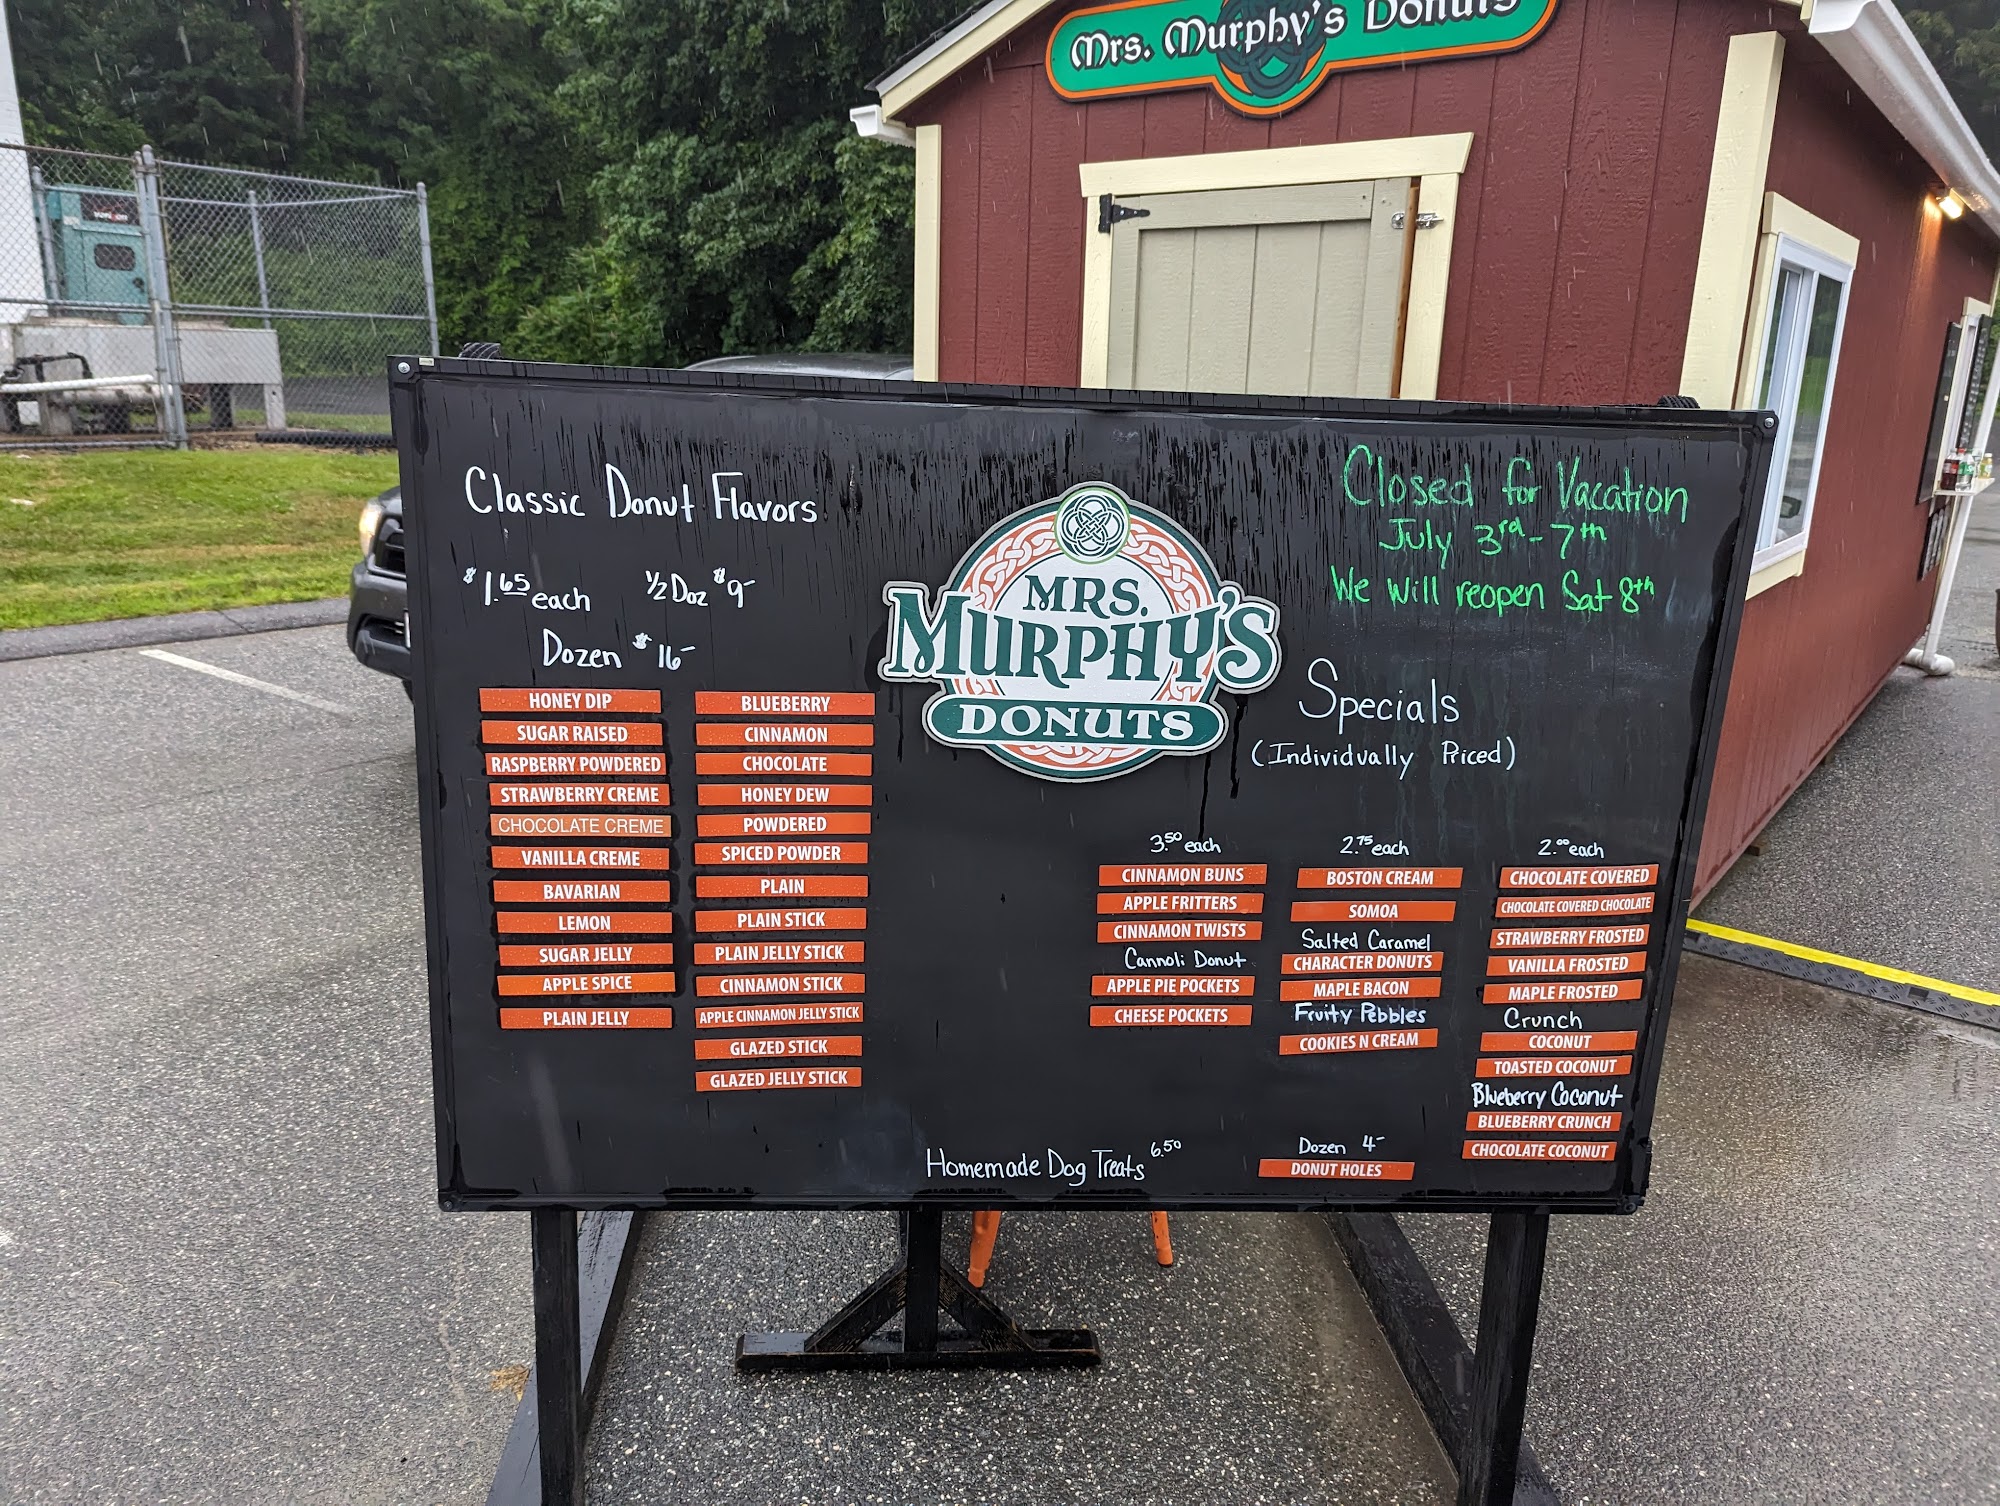 Mrs. Murphy's Donuts
Classic Donut Flavors
$1.65 each
1/2 Doz $9-
Dozen $16-
HONEY DIP
SUGAR RAISED
RASPBERRY POWDERED
STRAWBERRY CREME
CHOCOLATE CREME
VANILLA CREME
BAVARIAN
LEMON
SUGAR JELLY
APPLE SPICE
PLAIN JELLY
BLUEBERRY
CINNAMON
CHOCOLATE
HONEY DEW
POWDERED
SPICED POWDER
PLAIN
PLAIN STICK
PLAIN JELLY STICK
CINNAMON STICK
APPLE CINNAMON JELLY STICK
GLAZED STICK
GLAZED JELLY STICK
MRS.
MURPHY'S
DONUTS
Closed for Vacation
July 3rd - 7th
We Will reopen Sat 8th
Specials
(Individually Priced)
3.50 each
CINNAMON BUNS
APPLE FRITTERS
CINNAMON TWISTS
Cannoli Donut
APPLE PIE POCKETS
CHEESE POCKETS
2.75 each
BOSTON CREAM
SOMOA
Salted Caramel
CHARACTER DONUTS
MAPLE BACON
Fruity Pebbles
COOKIES N CREAM
2.00 each
CHOCOLATE COVERED
CHOCOLATE COVERED CHOCOLATE
STRAWBERRY FROSTED
VANILLA FROSTED
MAPLE FROSTED
Crunch
COCONUT
TOASTED COCONUT
Blueberry Coconut
BLUEBERRY CRUNCH
CHOCOLATE COCONUT
Homemade Dog Treats 6.50
Dozen 4-
DONUT HOLES